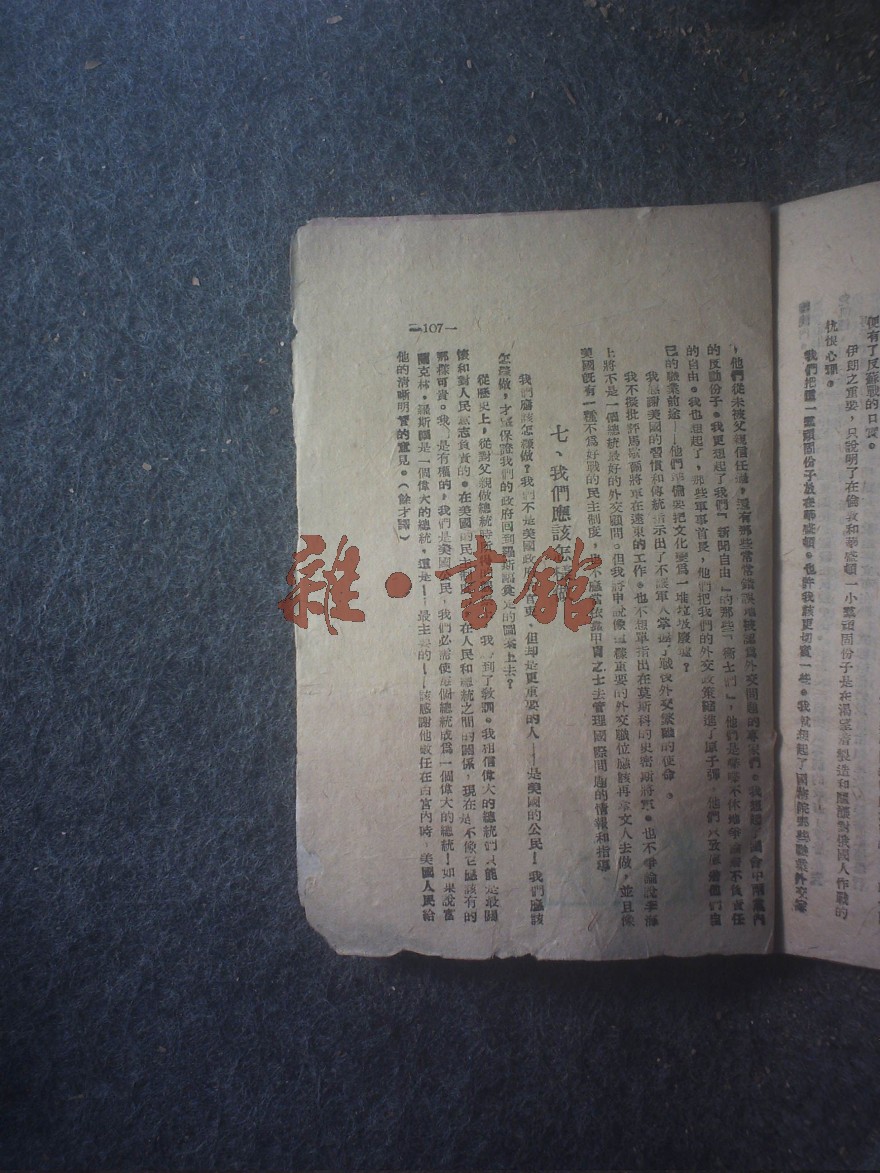 便有了反蘇戰的口實。
伊朗之重要,只說明了在倫敦和華盛頓一小羣頑固份子是在渴望着製造和醞釀對俄國人作戰的
仇恨心理。
我們把這一羣頑固份子放在華盛頓。也許我該更切實一些。我就想起了國務院那些職業外交家
,他們從未被父親信任過,還有那些常常錯誤地被認為外交問題的專家們。我想起了國會中兩黨內
的反動份子。我更想起了我們「新聞自由」的那些「衛士們」,他們是喋喋不休地爭論着不負責任
的自由。我也想起了,那些軍事首長,他們把我們的外交政策隨進了原子彈,他們只致力於他們自
己的職業前途——他們準備要把文化變爲一堆垃圾廢墟?
我感謝美國的習慣和傳統指示出了不讓軍人掌握了戰後外交緊融的使命。
我不擬批評馬歇爾將軍在遠東的工作。也不想單指出在莫斯科的史密斯將軍。也不爭論說李海
上將不是一個總統最好的外交顧問。但我將申說像這樣重要的外交職位應該再拿文人去做,並且像
美國既有一種不爲好戰的民主制度,就不應當依靠甲胄之士去管理國際間題的情報和指導
七、我們應該怎樣做
我們應該怎樣做?我們不是美國政府的首更、但却是更重要的人——是美國的公民!我們應該
怎樣做,才能保證我們的政府回到羅斯福奠定的圖案上去?
從歷史上,從對父親做總統時 我得到了教訓。我相信偉大的總統們只能是最關
懷和對人民意志負責的。在美國的民主制度 在人民和總統之間的關係,現在是不像它應該有的
那樣可貴。我們是有權的,我們是美國人民,我們必需使每個總統成爲一個偉大的總統!如果說富
蘭克林·羅斯福是一個偉大的總統,還是——最主要的——該感謝他敢任在白宮內時,美國人民給
他的清晰明豐的意見。(餘才譯)
—107—
雜·書館